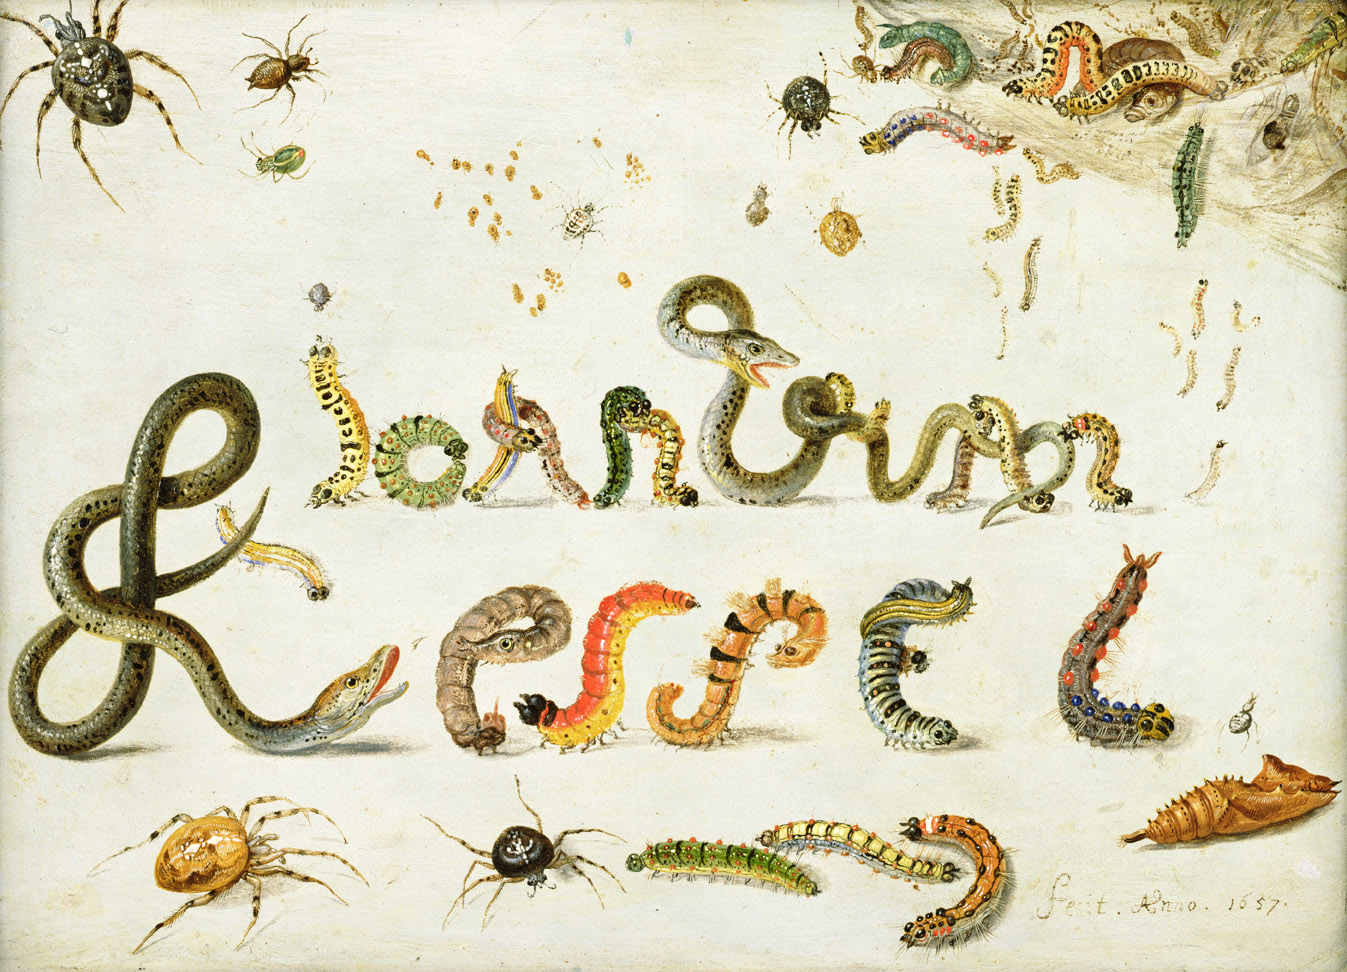 ioan van
Kessel
fecit. Anno. 1657.